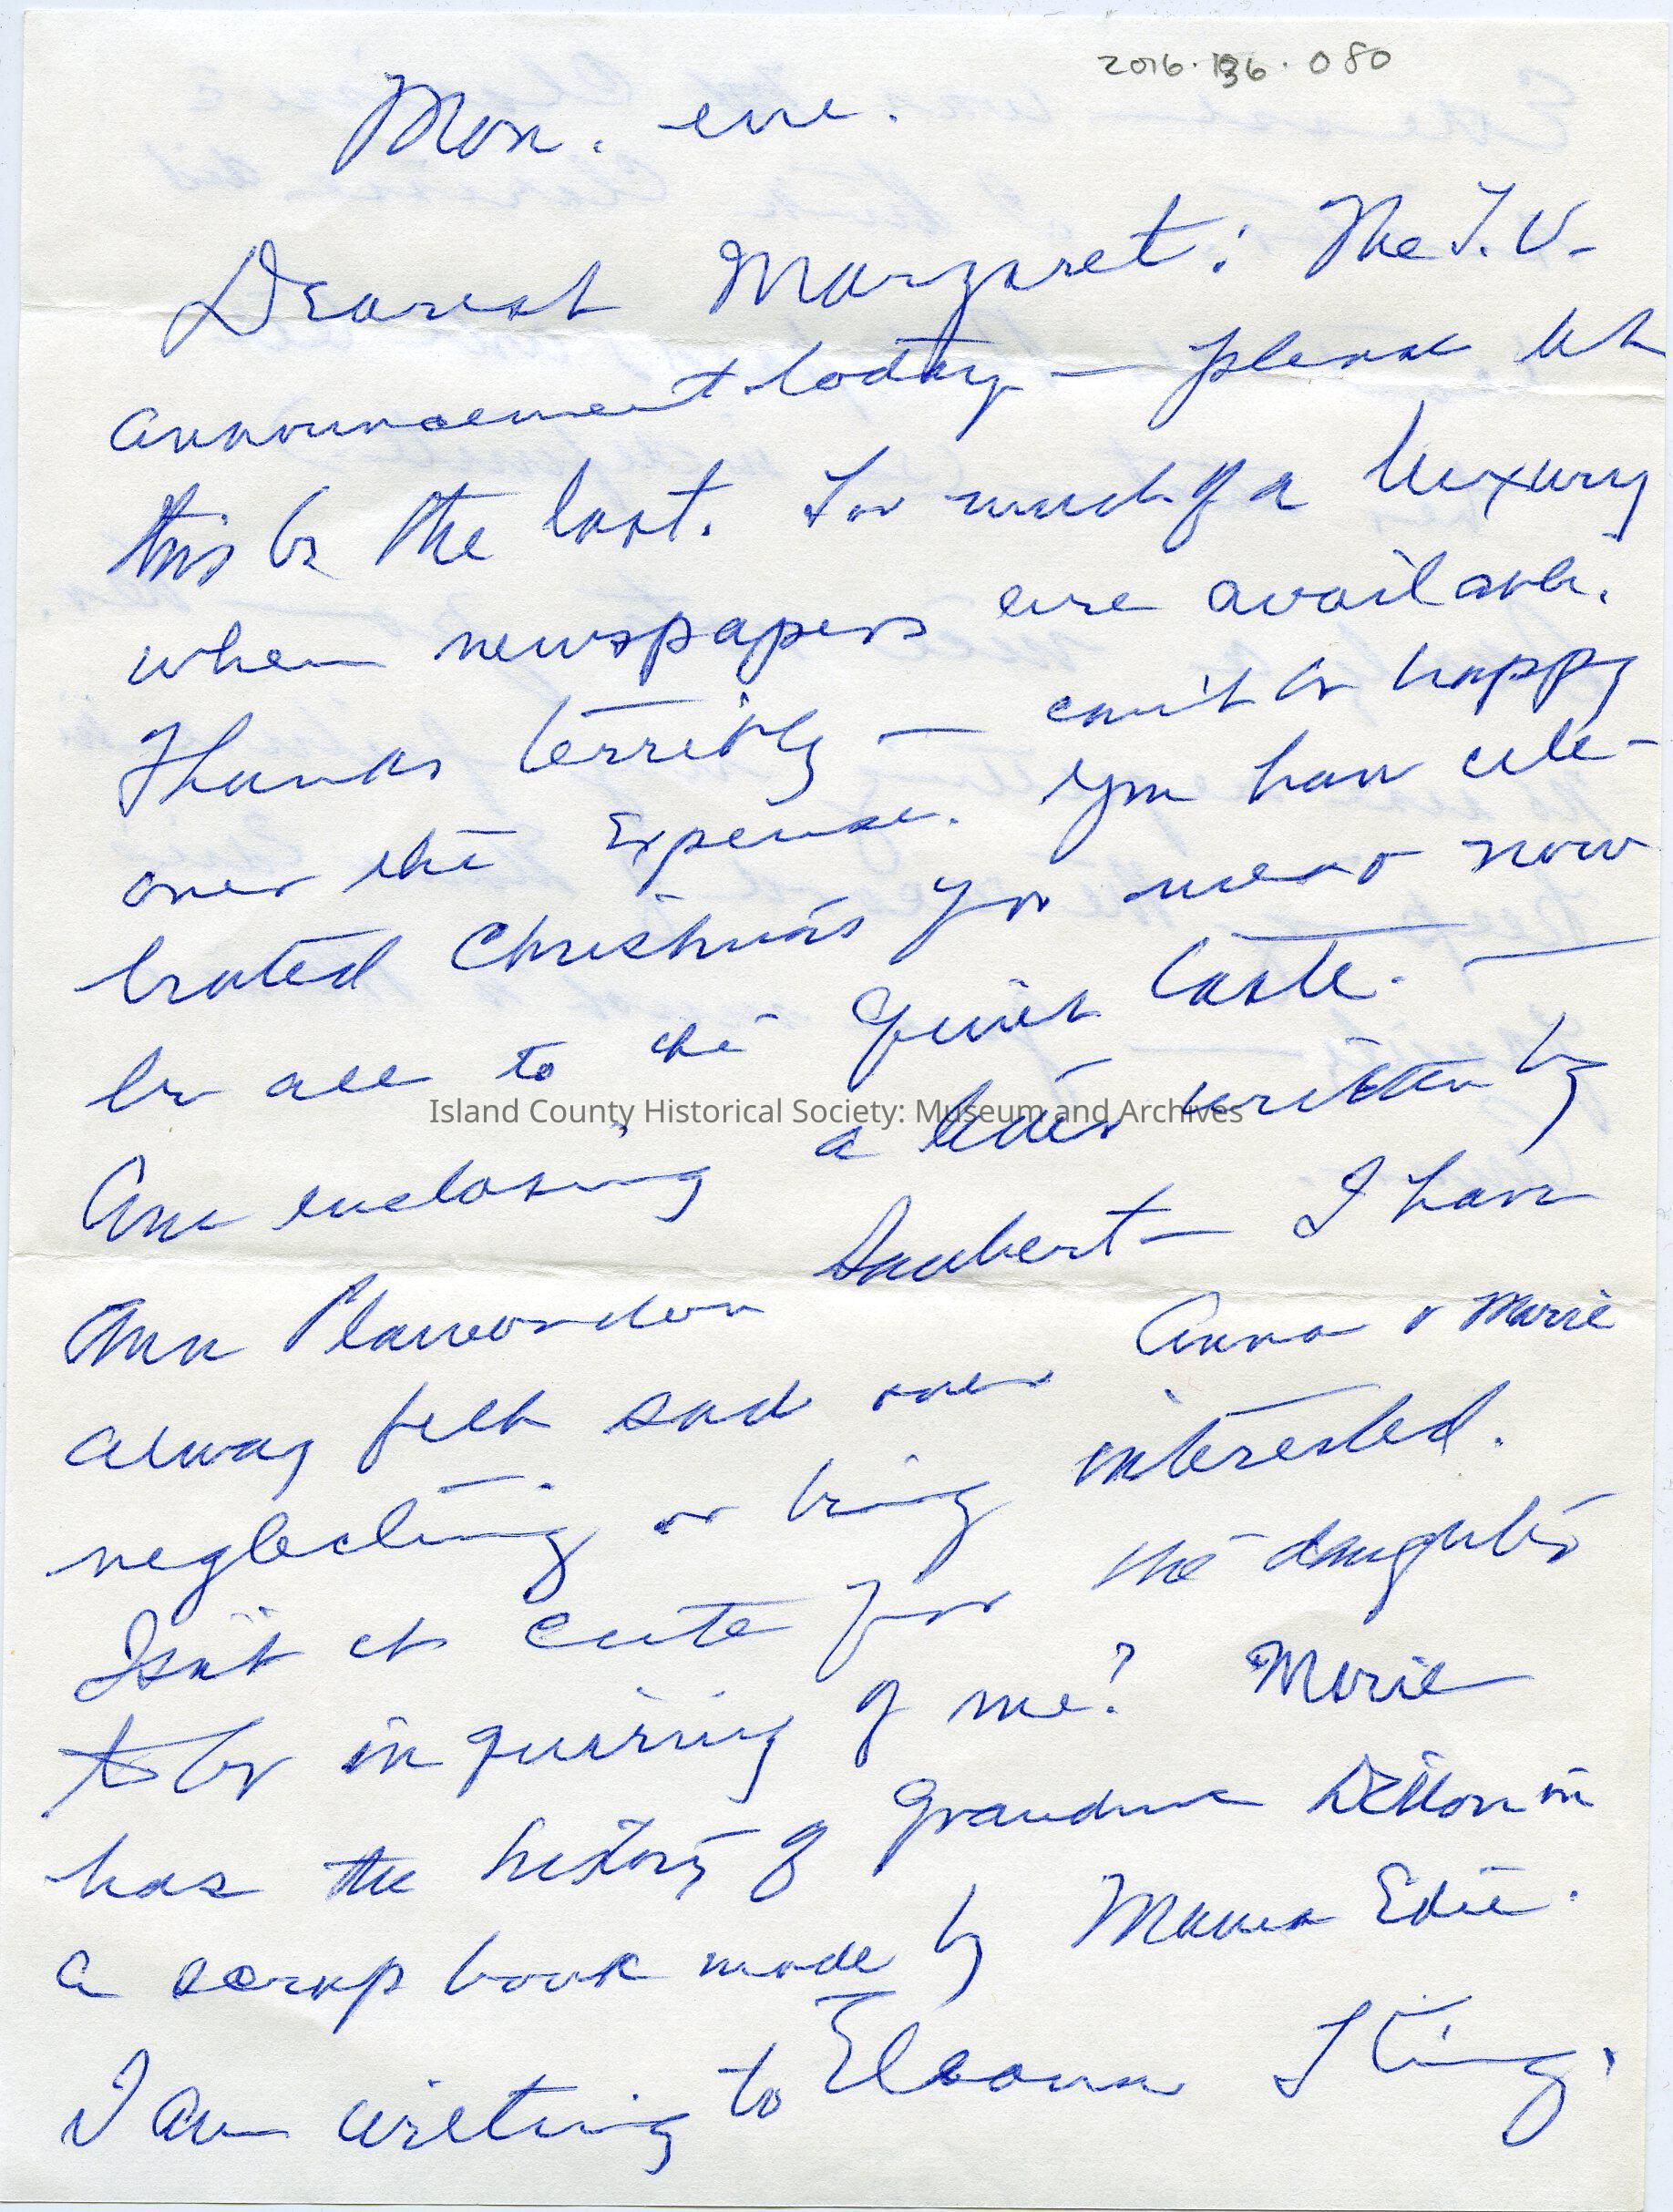 2016.136.080
Mon. eve.
Dearest Margaret: The T.V.
announcement today — please let
this be the last. Too much of a luxury
when newspapers are available.
Thanks terribly — can't be happy
over the expense. You have cele-
brated Christmas for me so now
be all to the quiet taste. —
Island County Historical Society: Museum and Archives
Am enclosing a letter written by
Ann Plamondon Saubert — I have
always felt sad over Anna & Marie
neglecting or being interested.
Isn't it cute for the daughters
to be inquiring of me? Marie
has the history of Grandma Dillon in
a scrap book made by Mama Edie.
I am writing to King.